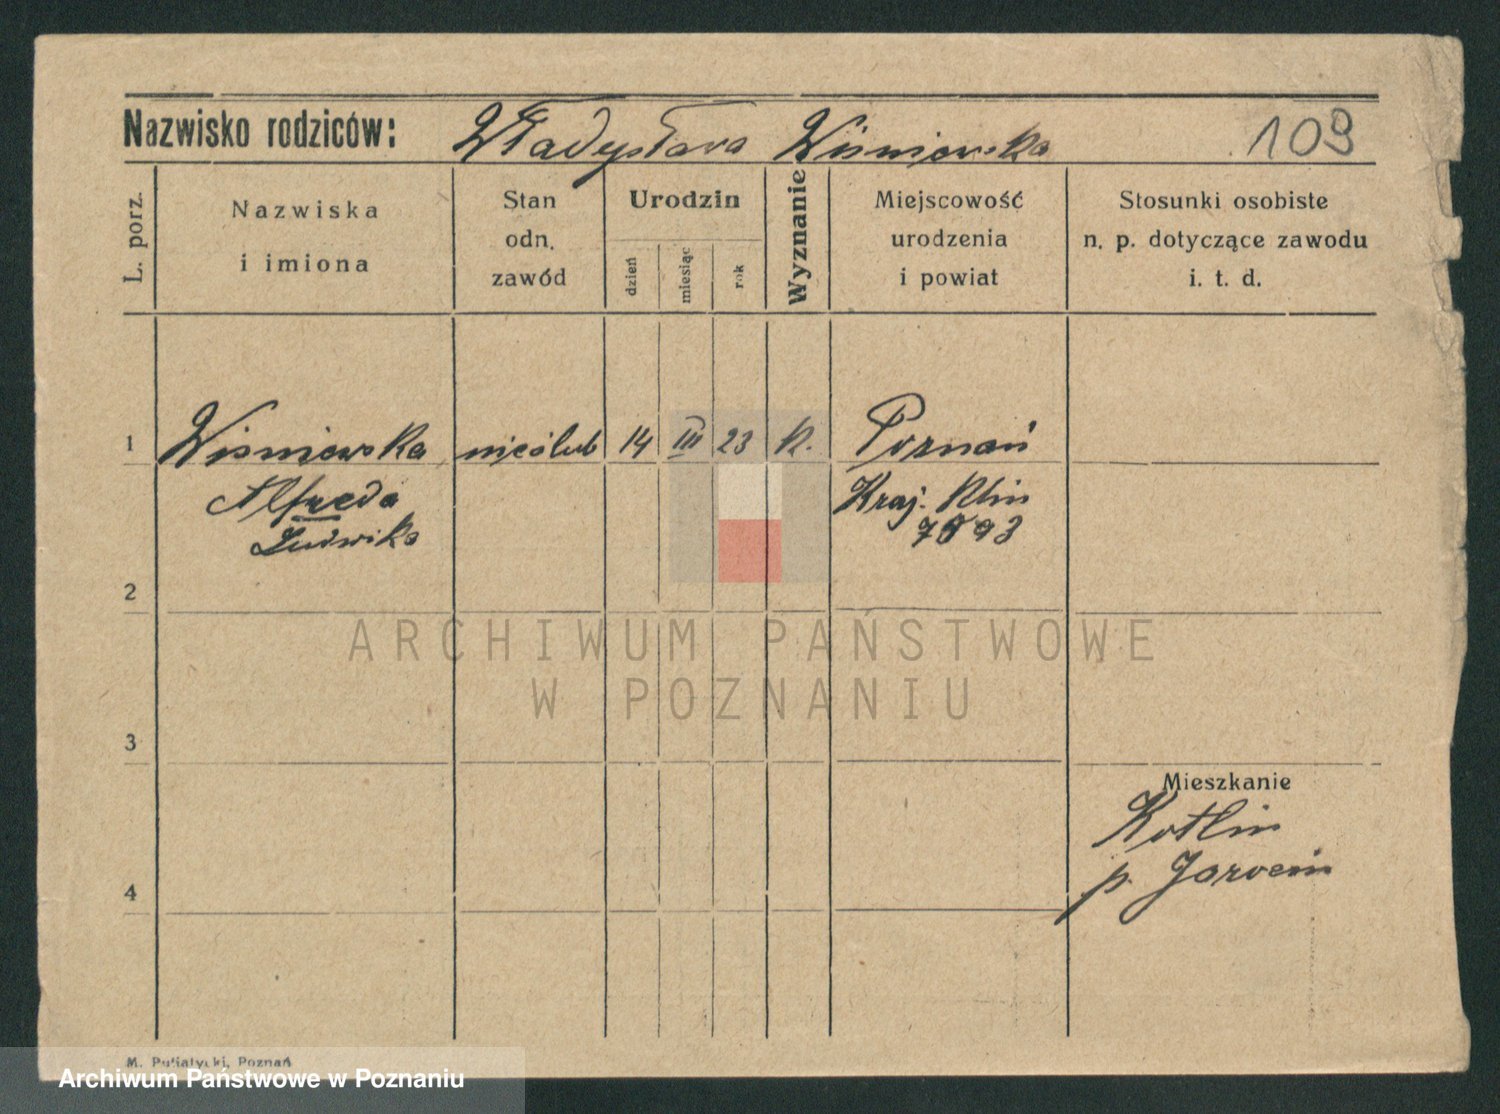 Nazwisko rodziców: Władysława Wiśniewska 109
L. porz.
Nazwiska
i imiona
Stan
odn.
zawód
Urodzin
dzień
miesiąc
rok
Wyznanie
Miejscowość
urodzenia
i powiat
Stosunki osobiste
n. p. dotyczące zawodu
i. t. d.
1 Wiśniewska nieślub 14 III 23 K. Poznań
Alfreda Kraj. Klin
Ludwika
2
ARCHIWUM PAŃSTWOWE
W POZNANIU
3
Mieszkanie
Kotlin
p. Jarocin
4
M. Putiatycki, Poznań
Archiwum Państwowe w Poznaniu